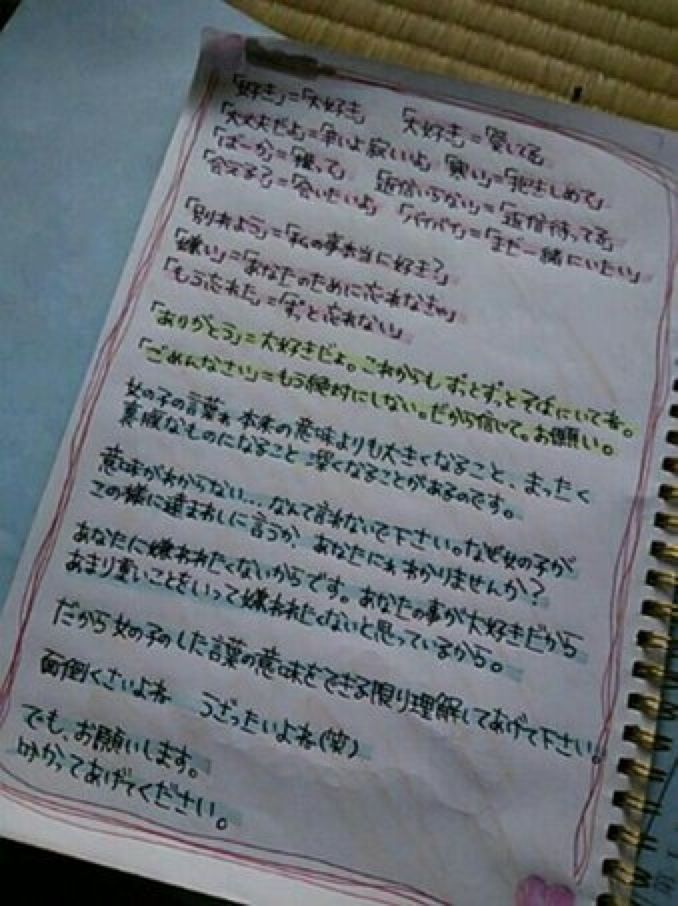 「好き」=「大好き」 「大好き」=「愛してる」
「大丈夫だよ」=「辛いよ寂しいよ」 「寒い」=「抱きしめて」
「ばーか」=「構って」 「返信いらない」=「返信待ってる」
「会える?」=「会いたいよ」 「バイバイ」=「まだ一緒にいたい」
「別れよう」=「私の事本当に好き?」
「嫌い」=「あなたのために忘れなきゃ」
「もう忘れた」=「ずっと忘れない」
「ありがとう」=大好きだよ。これからもずっとずっとそばにいてネ。
「ごめんなさい」=もう絶対にしない。だから信じて。お願い。
女の子の言葉わ本来の意味よりも大きくなること、まったく
真逆なものになること 深くなることがあるのです。
意味がわからない…なんて言わないで下さい。なぜ女の子が
この様に遠まわしに言うか、あなたにわわかりませんか?
あなたに嫌われたくないからです。あなたの事が大好きだから
あまり重いことをいって嫌われたくないと思っているから。
だから女の子のした言葉の意味をできる限り理解してあげて下さい。
面倒くさいよね うざったいよね(笑)
でも、お願いします。
分かってあげてください。